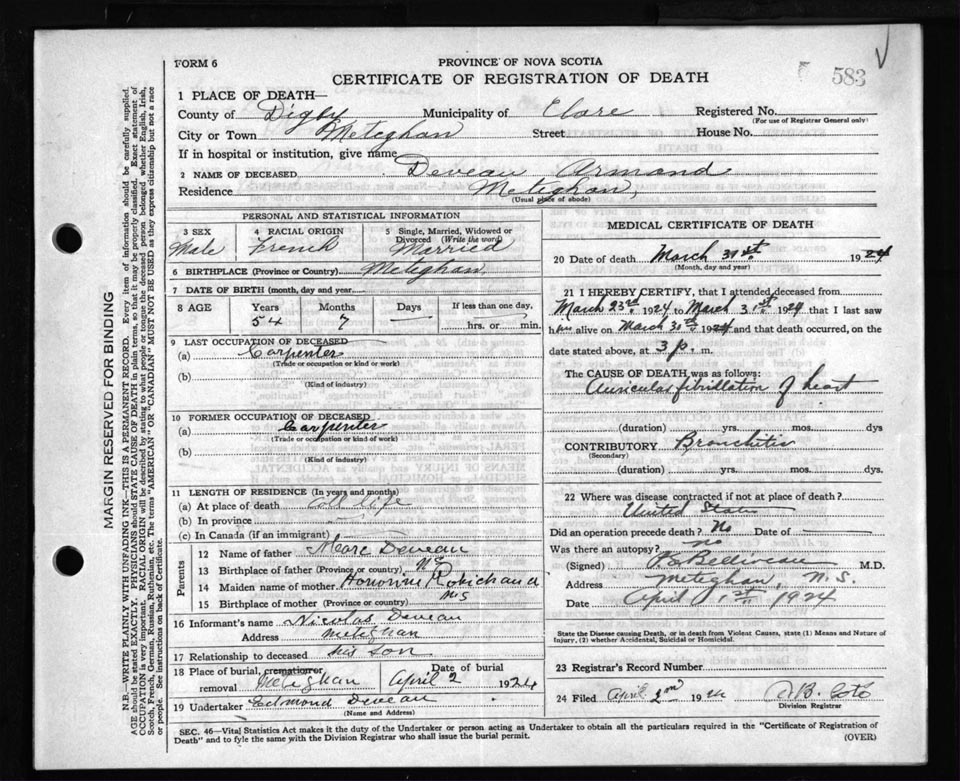 FORM 6
PROVINCE OF NOVA SCOTIA
CERTIFICATE OF REGISTRATION OF DEATH
583
1 PLACE OF DEATH—
County of Digby Municipality of Clare Registered No.
(For use of Registrar General only)
City or Town Meteghan Street House No.
If in hospital or institution, give name
2 NAME OF DECEASED Deveau Armand
Residence Meteghan
(Usual place of abode)
PERSONAL AND STATISTICAL INFORMATION
3 SEX 4 RACIAL ORIGIN 5 Single, Married, Widowed or Divorced (Write the word)
Male French Married
6 BIRTHPLACE (Province or Country) Meteghan
7 DATE OF BIRTH (month, day and year)
8 AGE Years Months Days If less than one day,
54 7 hrs. or min.
9 LAST OCCUPATION OF DECEASED
(a) Carpenter
(Trade or occupation or kind of work)
(b)
(Kind of industry)
10 FORMER OCCUPATION OF DECEASED
(a) Carpenter
(Trade or occupation or kind of work)
(b)
(Kind of industry)
11 LENGTH OF RESIDENCE (In years and months)
(a) At place of death All life
(b) In province
(c) In Canada (if an immigrant)
Parents
12 Name of father Marc Deveau
13 Birthplace of father (Province or country) N S
14 Maiden name of mother Honorine Robichaud
15 Birthplace of mother (Province or country) N S
16 Informant's name Nicolas Deveau
Address Meteghan
17 Relationship to deceased his son
18 Place of burial, cremation or removal Meteghan Date of burial April 2 1924
19 Undertaker Edmond Deveau
(Name and Address)
MEDICAL CERTIFICATE OF DEATH
20 Date of death March 31st 1924
(Month, day and year)
21 I HEREBY CERTIFY, that I attended deceased from
March 23rd 1924 to March 31st 1924 that I last saw
h alive on March 31st 1924 and that death occurred, on
date stated above, at 3 p. m.
The CAUSE OF DEATH was as follows:
Auricular fibrillation of heart
(duration) yrs. mos. dys
CONTRIBUTORY Bronchitis
(Secondary)
(duration) yrs. mos. dys.
22 Where was disease contracted if not at place of death?
United States
Did an operation precede death? No Date of
Was there an autopsy? no
(Signed) Belliveau M.D.
Address Meteghan, N.S.
Date April 1st 1924
State the Disease causing Death, or in death from Violent Causes, state (1) Means and Nature of
Injury, (2) whether Accidental, Suicidal or Homicidal.
23 Registrar's Record Number
24 Filed April 2nd 1924
Division Registrar
SEC. 46—Vital Statistics Act makes it the duty of the Undertaker or person acting as Undertaker to obtain all the particulars required in the "Certificate of Registration of
Death" and to fyle the same with the Division Registrar who shall issue the burial permit. (OVER)
MARGIN RESERVED FOR BINDING
N.B.—WRITE PLAINLY WITH UNFADING INK—THIS IS A PERMANENT RECORD. Every item of information should be carefully supplied.
AGE should be stated EXACTLY. PHYSICIANS should STATE CAUSE OF DEATH in plain terms, so that it may be properly classified. Exact statement of
OCCUPATION is very important. RACIAL ORIGIN will be described by stating to what people or tongue the deceased person belonged whether English, Irish,
Scotch, French, German, Russian, Ruthenian, etc. The terms "AMERICAN" or "CANADIAN" MUST NOT BE USED as they express citizenship but not a race
or people. See instructions on back of Certificate.